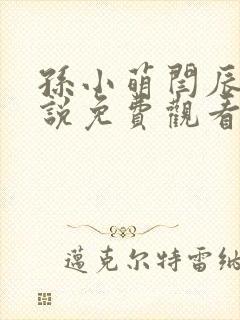 孫小萌閆辰
說免費觀看
邁克尔特雷納